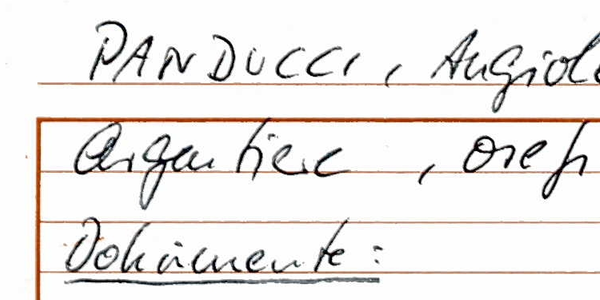 PANDUCCI, Angiol
Argentiere, oref
Dokumente: